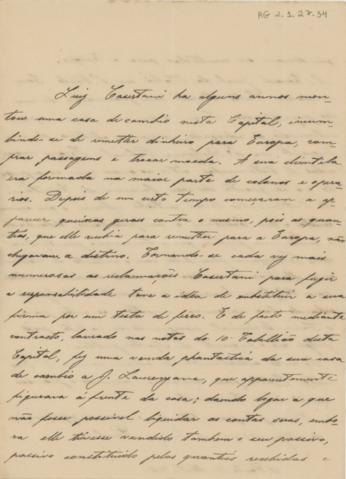 AG 2.1.27.34
Luiz Casertani ha alguns annos mon-
tou uma casa de cambio nesta Capital, incum-
bindo-se de remetter dinheiro para Europa, com-
prar passagens e trocar moeda. A sua clientela
era formada na maior parte de colonos e opera-
rios. Depois de um certo tempo começaram a ap-
parecer queixas geraes contra o mesmo, pois as quan-
tias, que elle recebia para remetter para a Europa, não
chegavam a destino. Tornando-se cada vez mais
numerosas as reclamações Casertani para fugir
a responsabilidade teve a idea de substituir a sua
firma por um testa de ferro. E de facto mediante
contracto, lavrado nas notas do 10 Tabellião desta
Capital, fez uma venda phantastica da sua casa
de cambio a J. Laurenzana, que apparentemente
figurava á frente da casa; dando logar a que
não fosse possivel liquidar as contas suas, embo-
ra elle tivesse vendido tambem o seu passivo,
passivo constituido pelas quantias recebidas e